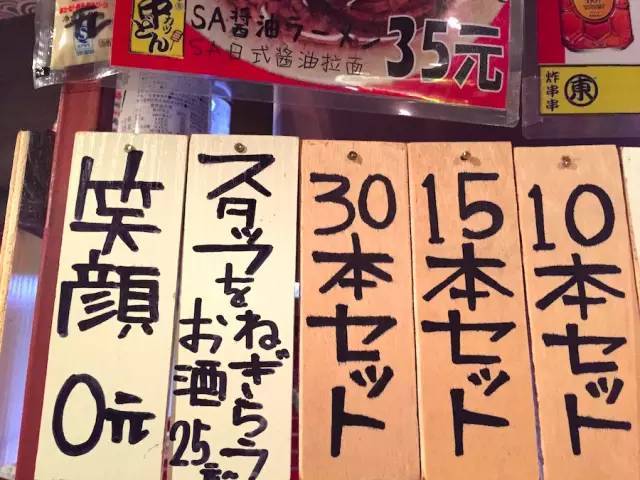 SA醤油ラーメン
SA日式酱油拉面
35元
炸串串
東
10本セット
15本セット
30本セット
スタッフをねぎらう
お酒25元
笑顔 0元